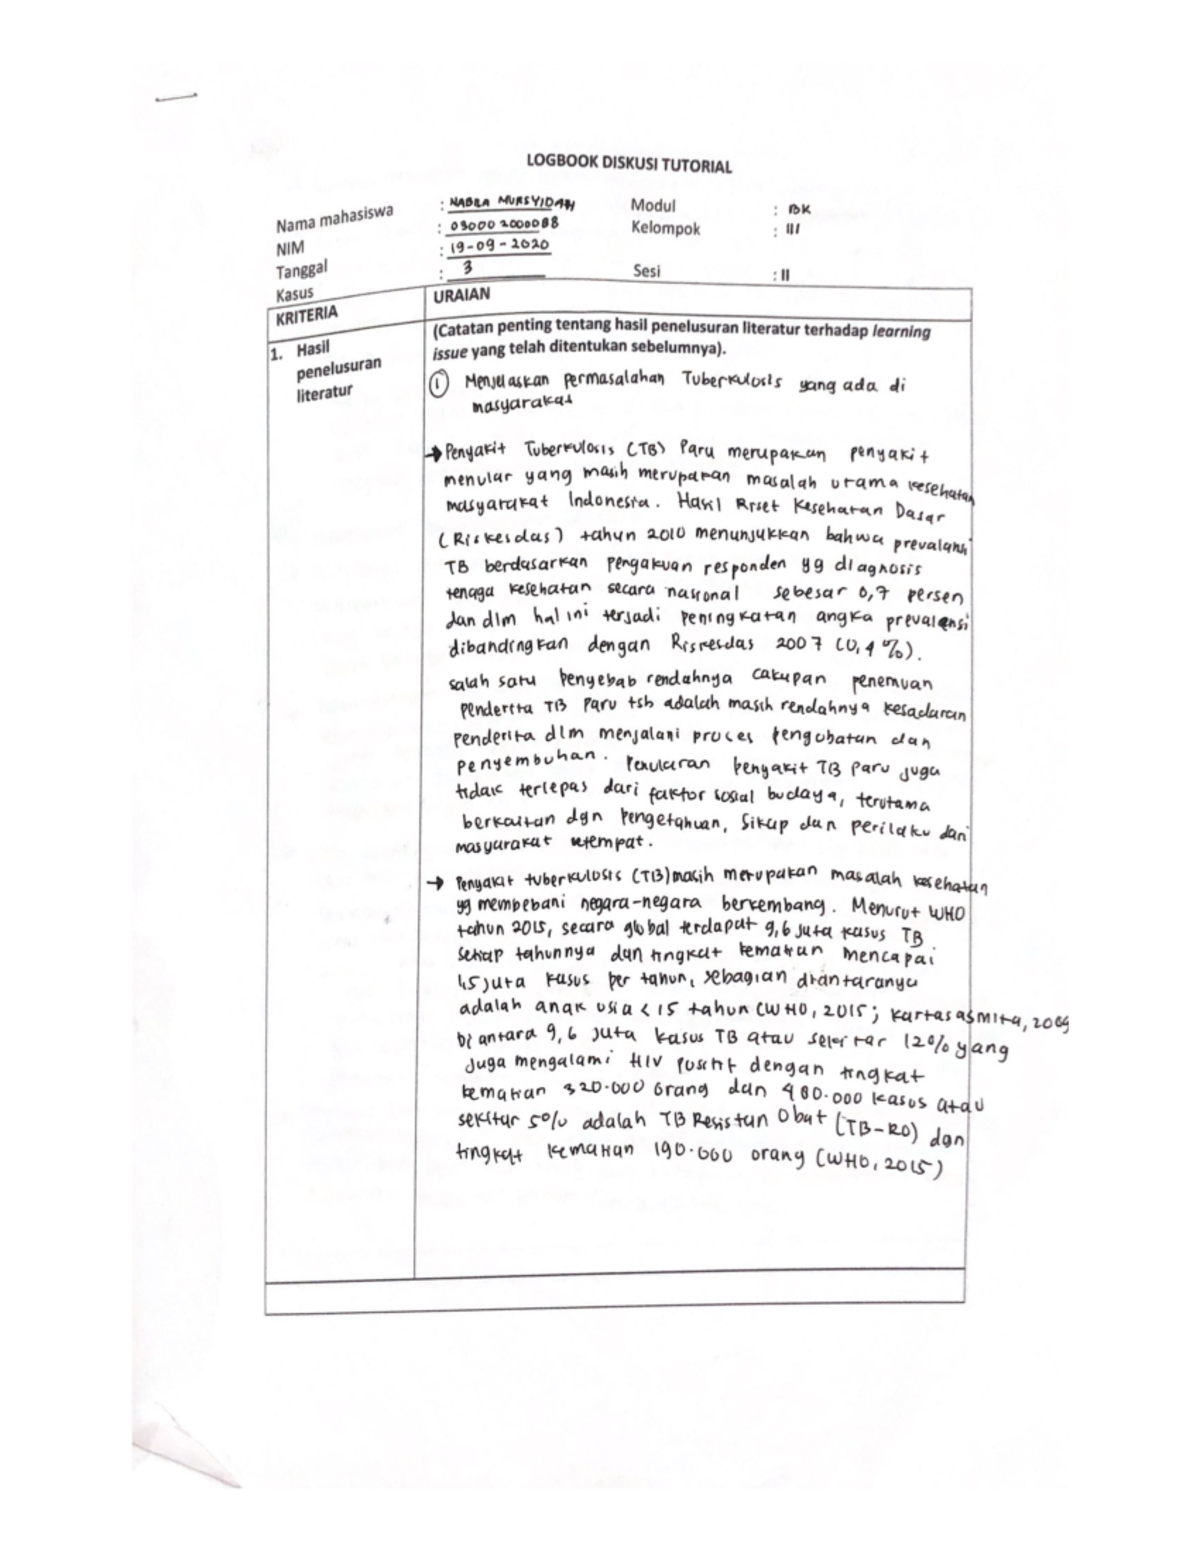 LOGBOOK DISKUSI TUTORIAL
Nama mahasiswa : NABILA MURSYIDAH Modul : BDK
NIM : 03000 2000088 Kelompok : III
Tanggal : 19-09-2020
Kasus : 3 Sesi : II
KRITERIA URAIAN
1. Hasil penelusuran literatur
(Catatan penting tentang hasil penelusuran literatur terhadap learning
issue yang telah ditentukan sebelumnya).
① Menjelaskan Permasalahan Tuberkulosis yang ada di
masyarakat
→ Penyakit Tuberkulosis (TB) Paru merupakan penyakit
menular yang masih merupakan masalah utama kesehatan
masyarakat Indonesia. Hasil Riset Kesehatan Dasar
(Riskesdas) tahun 2010 menunjukkan bahwa prevalansi
TB berdasarkan pengakuan responden yg diagnosis
tenaga kesehatan secara nasional sebesar 0,7 persen
dan dlm hal ini terjadi peningkatan angka prevalensi
dibandingkan dengan Riskesdas 2007 (0,4%).
salah satu penyebab rendahnya cakupan penemuan
penderita TB Paru tsb adalah masih rendahnya kesadaran
penderita dlm menjalani proces pengobatan dan
penyembuhan. Penularan penyakit TB Paru juga
tidak terlepas dari faktor sosial budaya, terutama
berkaitan dgn pengetahuan, sikap dan perilaku dari
masyarakat setempat.
→ Penyakit tuberkulosis (TB) masih merupakan masalah kesehatan
yg membebani negara-negara berkembang. Menurut WHO
tahun 2015, secara global terdapat 9,6 juta kasus TB
setiap tahunnya dan tingkat kematian mencapai
1,5 juta kasus per tahun, sebagian diantaranya
adalah anak usia < 15 tahun (WHO, 2015; Kartasasmita, 2009
Di antara 9,6 juta kasus TB atau sekitar 12% yang
juga mengalami HIV positif dengan tingkat
kematian 320.000 orang dan 480.000 kasus atau
sekitar 5% adalah TB Resistan Obat (TB-RO) dgn
tingkat kematian 190.000 orang (WHO, 2015)